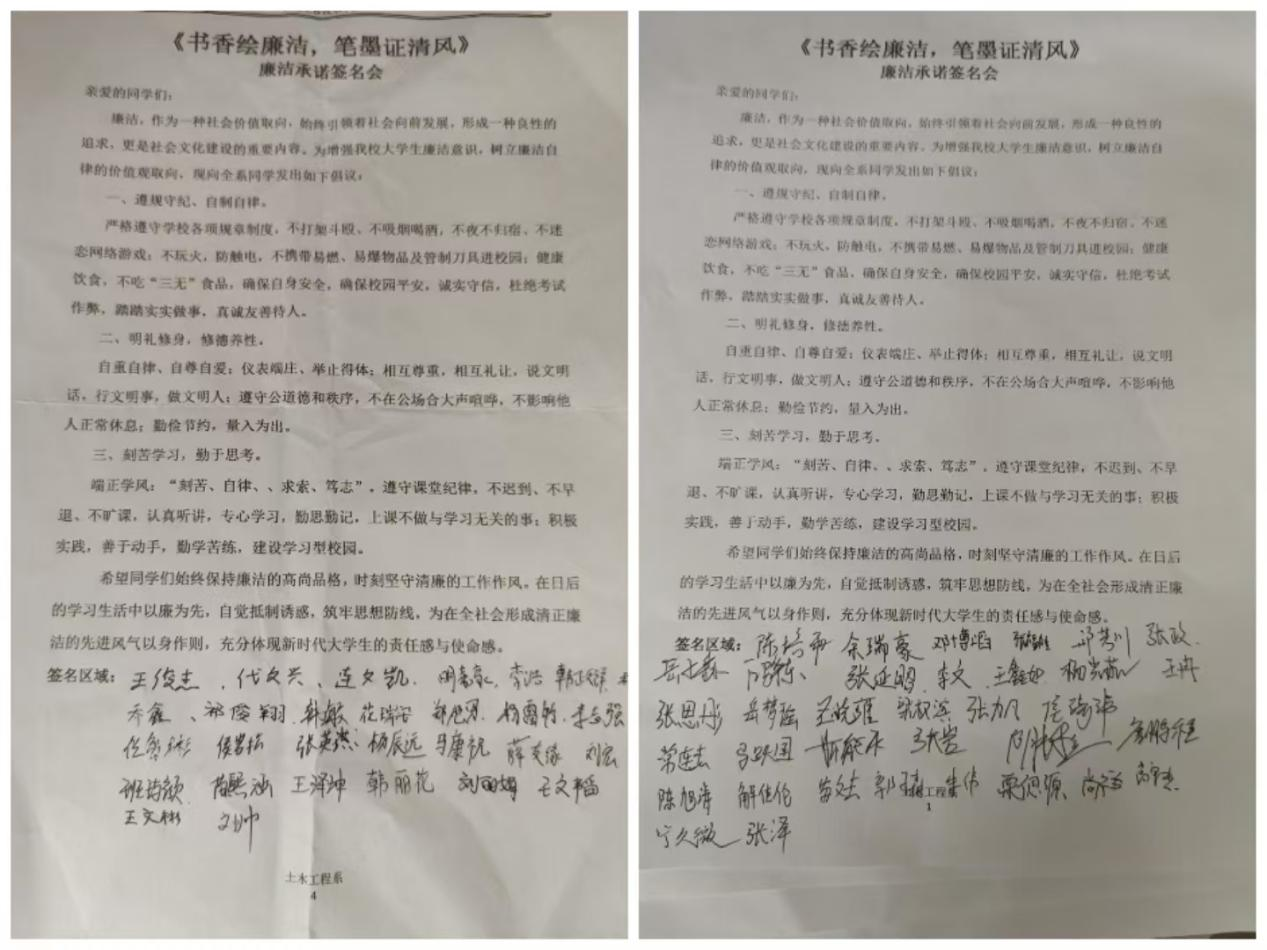 《书香绘廉洁，笔墨证清风》
廉洁承诺签名会
亲爱的同学们：
廉洁，作为一种社会价值取向，始终引领着社会向前发展，形成一种良性的
追求，更是社会文化建设的重要内容。为增强我校大学生廉洁意识，树立廉洁自
律的价值观取向，现向全系同学发出如下倡议：
一、遵规守纪、自制自律。
严格遵守学校各项规章制度，不打架斗殴、不吸烟喝酒，不夜不归宿、不迷
恋网络游戏；不玩火，防触电，不携带易燃、易爆物品及管制刀具进校园；健康
饮食，不吃“三无”食品，确保自身安全，确保校园平安，诚实守信，杜绝考试
作弊，踏踏实实做事，真诚友善待人。
二、明礼修身，修德养性。
自重自律、自尊自爱；仪表端庄、举止得体；相互尊重，相互礼让，说文明
话，行文明事，做文明人；遵守公道德和秩序，不在公场合大声喧哗，不影响他
人正常休息；勤俭节约，量入为出。
三、刻苦学习，勤于思考。
端正学风：“刻苦、自律、、求索、笃志”，遵守课堂纪律，不迟到、不早
退、不旷课，认真听讲，专心学习，勤思勤记，上课不做与学习无关的事；积极
实践，善于动手，勤学苦练，建设学习型校园。
希望同学们始终保持廉洁的高尚品格，时刻坚守清廉的工作作风。在日后
的学习生活中以廉为先，自觉抵制诱惑，筑牢思想防线，为在全社会形成清正廉
洁的先进风气以身作则，充分体现新时代大学生的责任感与使命感。
签名区域：王俊杰、代文兴、连文凯、李浩
乔鑫、韩敏 杨雪韵 李志强
侯若松 张英杰 杨辰远 马康祝 刘宏
班诗颖 苗熙涵 王泽坤 韩丽花 刘丽娟 王文韬
王文彬 刘帅
土木工程系
4
《书香绘廉洁，笔墨证清风》
廉洁承诺签名会
亲爱的同学们：
廉洁，作为一种社会价值取向，始终引领着社会向前发展，形成一种良性的
追求，更是社会文化建设的重要内容。为增强我校大学生廉洁意识，树立廉洁自
律的价值观取向，现向全系同学发出如下倡议：
一、遵规守纪、自制自律。
严格遵守学校各项规章制度，不打架斗殴、不吸烟喝酒，不夜不归宿、不迷
恋网络游戏；不玩火，防触电，不携带易燃、易爆物品及管制刀具进校园；健康
饮食，不吃“三无”食品，确保自身安全，确保校园平安，诚实守信，杜绝考试
作弊，踏踏实实做事，真诚友善待人。
二、明礼修身，修德养性。
自重自律、自尊自爱；仪表端庄、举止得体；相互尊重，相互礼让，说文明
话，行文明事，做文明人；遵守公道德和秩序，不在公场合大声喧哗，不影响他
人正常休息；勤俭节约，量入为出。
三、刻苦学习，勤于思考。
端正学风：“刻苦、自律、、求索、笃志”，遵守课堂纪律，不迟到、不早
退、不旷课，认真听讲，专心学习，勤思勤记，上课不做与学习无关的事；积极
实践，善于动手，勤学苦练，建设学习型校园。
希望同学们始终保持廉洁的高尚品格，时刻坚守清廉的工作作风。在日后
的学习生活中以廉为先，自觉抵制诱惑，筑牢思想防线，为在全社会形成清正廉
洁的先进风气以身作则，充分体现新时代大学生的责任感与使命感。
签名区域：陈培希 余瑞豪 邓博滔 张政
张延明 李文 王冉
张思彤 岳梦瑶 张力凡
常连志 马跃国
陈旭涛 解佳伦 苗文志 栗偲源
宁久微 张泽
工程系
1